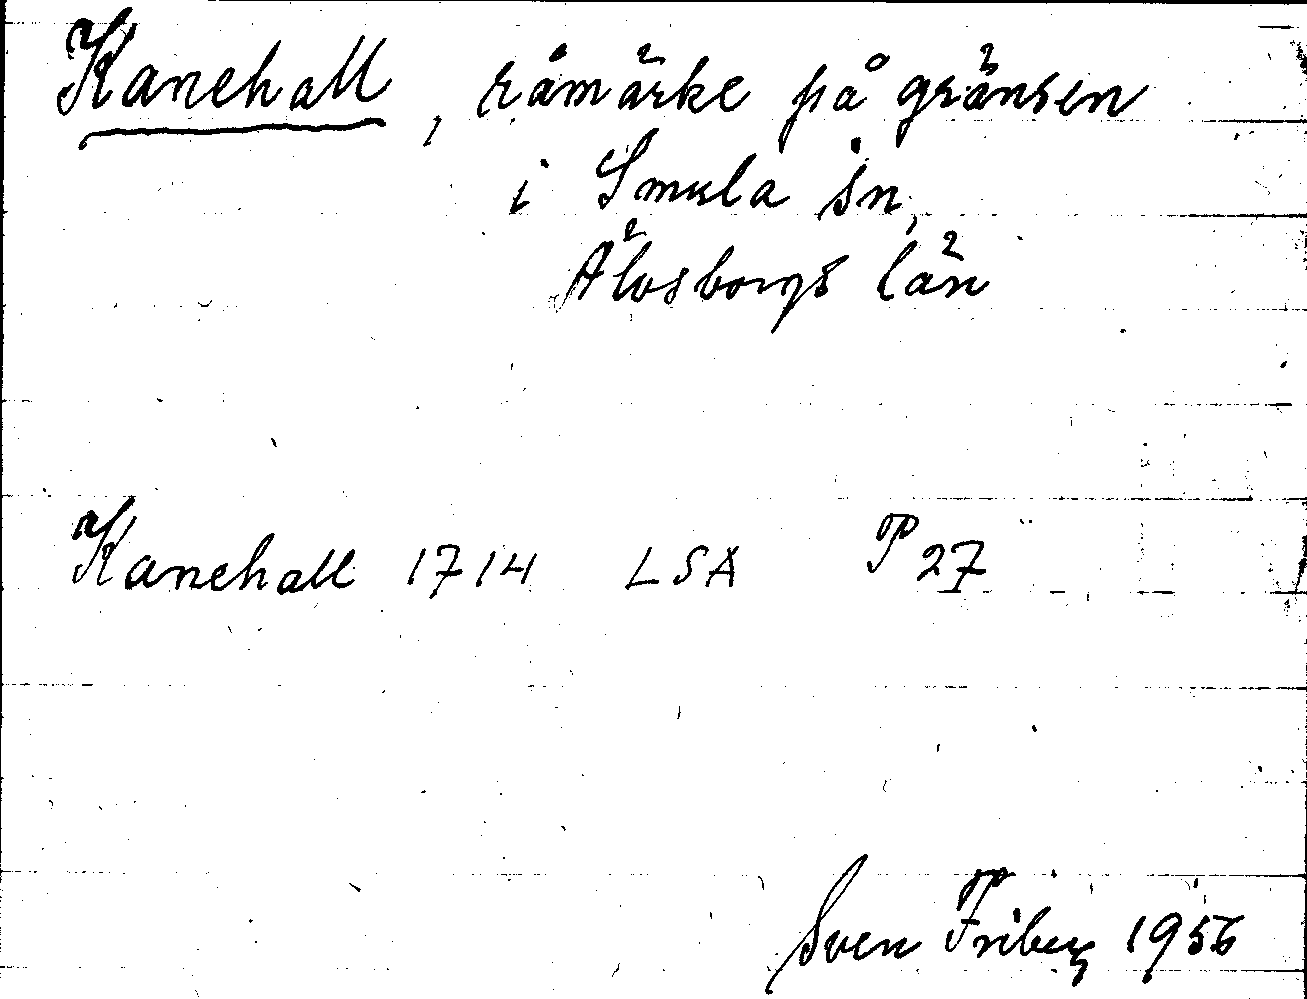 Kanehall, råmärke på gränsen
i Smula sn,
Älvsborgs län
Kanehall 1714 LSA P 27
Sven Friberg 1956